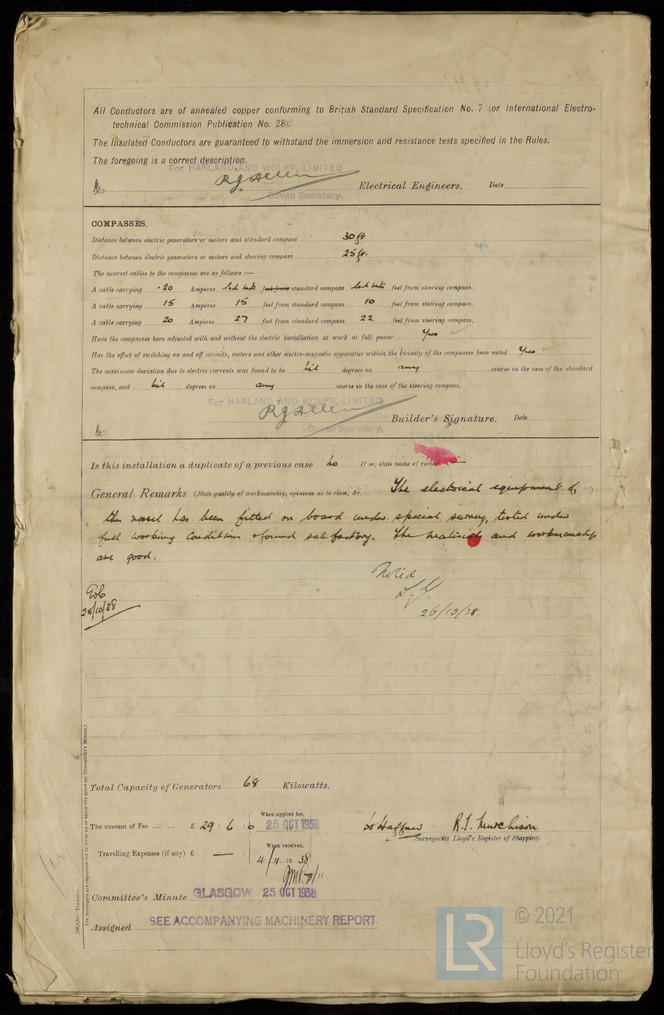 All Conductors are of annealed copper conforming to British Standard Specification No. 7 (or International Electro-
technical Commission Publication No. 28).
The Insulated Conductors are guaranteed to withstand the immersion and resistance tests specified in the Rules.
The foregoing is a correct description.
For HARLAND AND WOLFF, LIMITED
Electrical Engineers. Date
Govan Secretary.
COMPASSES.
Distance between electric generators or motors and standard compass 30 ft
Distance between electric generators or motors and steering compass 25 ft.
The nearest cables to the compasses are as follows:—
A cable carrying .20 Ampères led into feet from standard compass led into feet from steering compass.
A cable carrying 15 Ampères 15 feet from standard compass 10 feet from steering compass.
A cable carrying 20 Ampères 27 feet from standard compass 22 feet from steering compass.
Have the compasses been adjusted with and without the electric installation at work at full power Yes
Has the effect of switching on and off circuits, motors and other electro-magnetic apparatus within the vicinity of the compasses been noted Yes
The maximum deviation due to electric currents was found to be Nil degrees on any course in the case of the standard
compass, and Nil degrees on any course in the case of the steering compass.
For HARLAND AND WOLFF, LIMITED
Builder's Signature. Date
Govan Secretary.
Is this installation a duplicate of a previous case No If so, state name of vessel
General Remarks (State quality of workmanship, opinions as to class, &c. The electrical equipment of
this vessel has been fitted on board under special survey, tested under
full working conditions & found satisfactory. The materials and workmanship
are good.
Noted
26/10/38
28/10/38
Total Capacity of Generators 68 Kilowatts.
The amount of Fee ... ... £ 29 : 6 : 0 When applied for, 25 OCT 1938
R. J. Murchison
Surveyor to Lloyd's Register of Shipping.
Travelling Expenses (if any) £ — : : When received, 4/11 19 38
Committee's Minute GLASGOW 25 OCT 1938
Assigned SEE ACCOMPANYING MACHINERY REPORT.
LR
© 2021
Lloyd's Register
Foundation